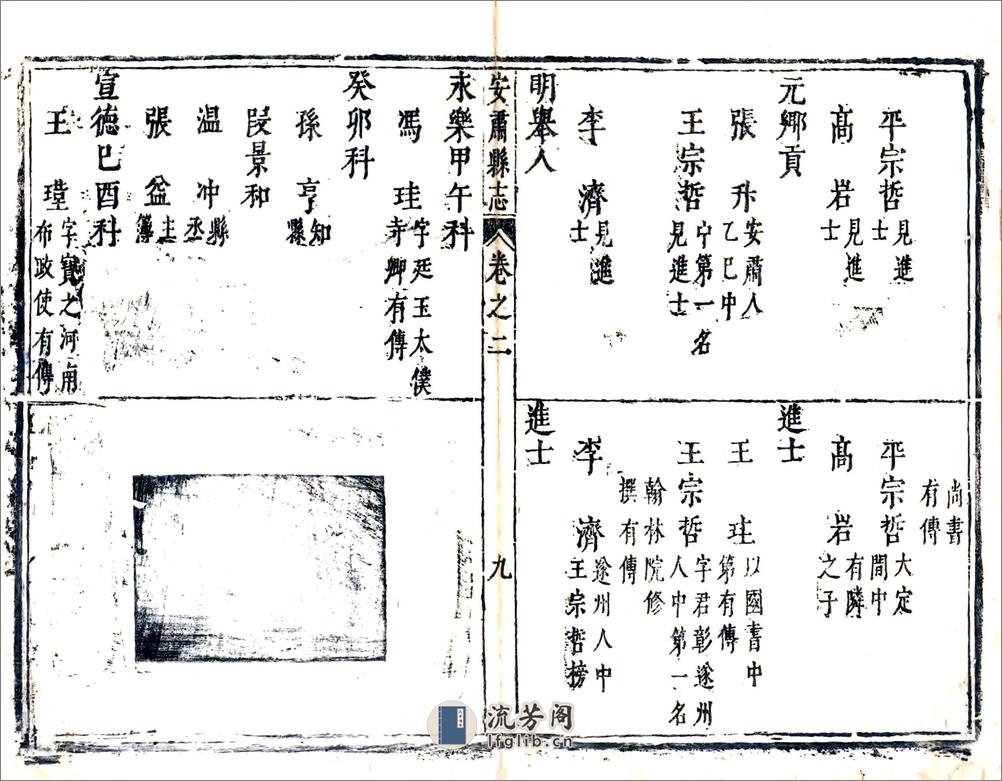 平宗哲 見進士
高岩 見進士
元鄉貢
張升 安肅人乙巳中
王宗哲 中第一名見進士
李濟 見進士
明舉人
尚書有傳
平宗哲 大定間中
高岩 有隣之子
進士
王珪 以國書中第有傳
王宗哲 字君彰遂州人中第一名
翰林院修撰有傳
李濟 遂州人中王宗哲榜
進士
安肅縣志 卷之二 九
永樂甲午科
馮珪 字廷玉太僕寺卿有傳
癸卯科
孫亨 知縣
段景和
温冲 縣丞
張盆 主簿
宣德己酉科
王 字寶之河南布政使有傳
流芳阁
lfglib.cn